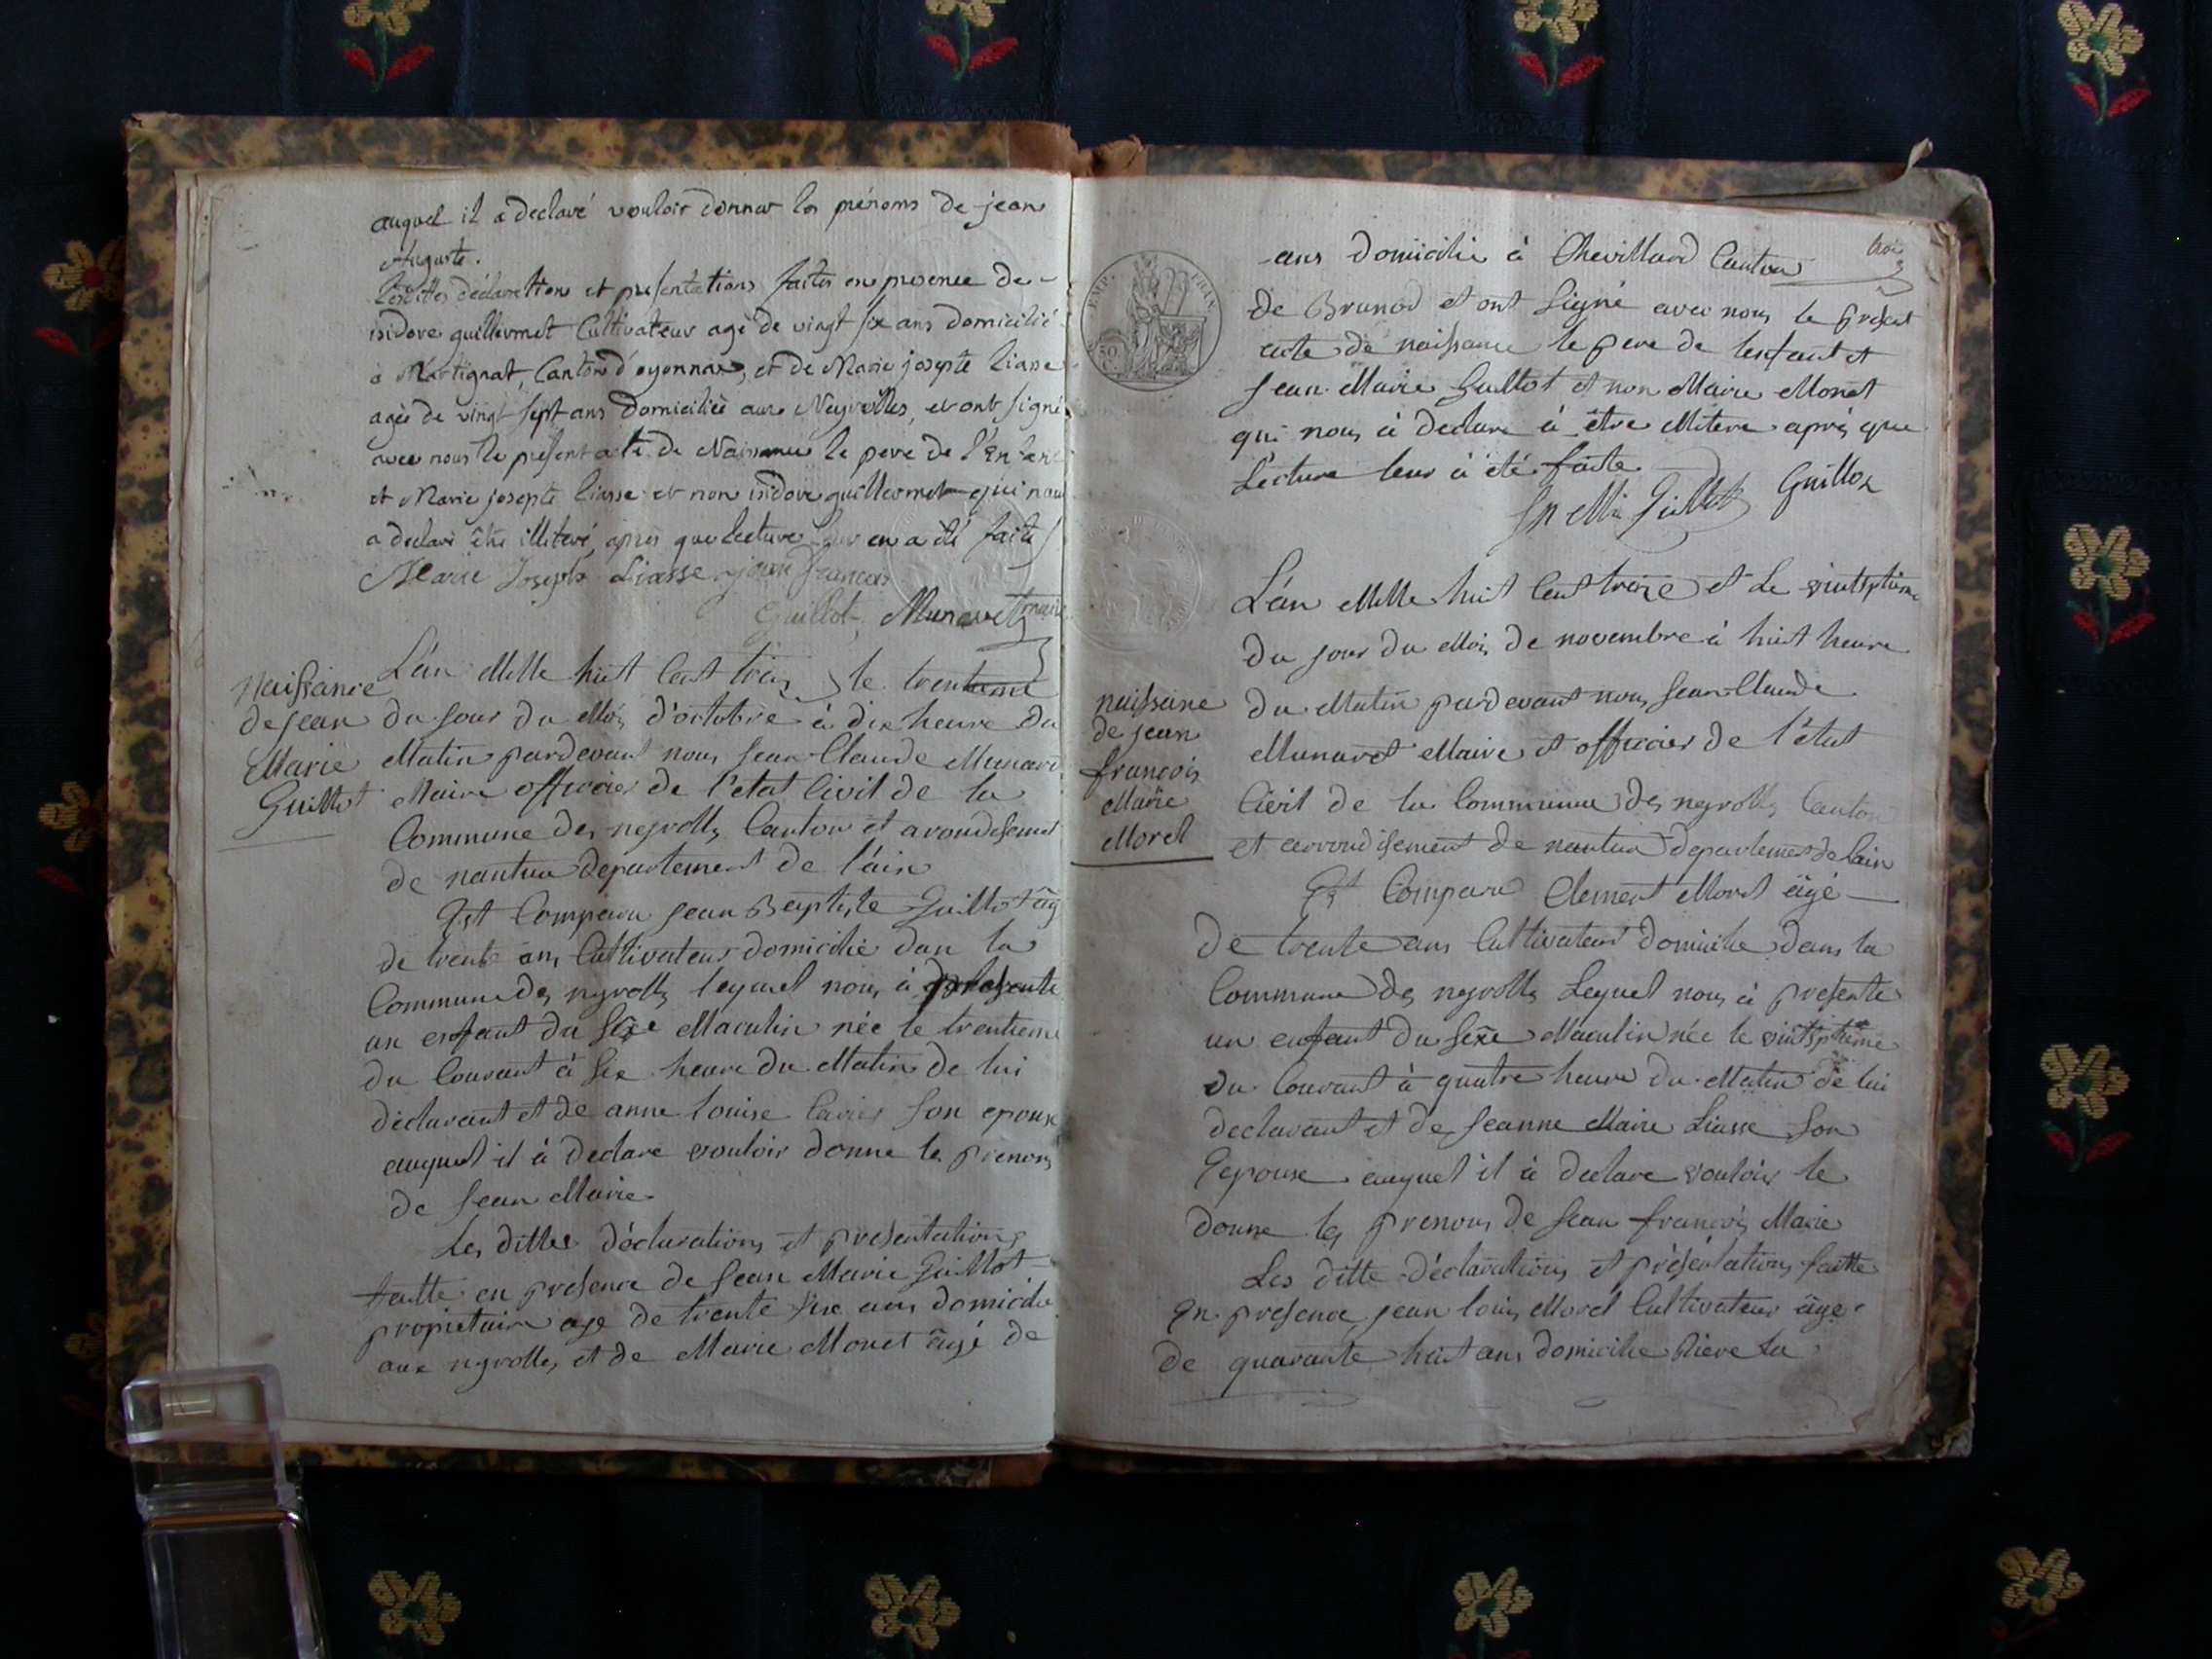 auquel il a declaré vouloir donner les prénoms de jean
Auguste.
Lesdittes déclarations et presentations faites en presence de
isidore guillermet Cultivateur agé de vingt six ans domicilié
à Martignat, Canton d'oyonnax, et de Marie josepte liasse
agée de vingt sept ans domiciliée aux Neyrolles, et ont signé
avec nous le présent acte de Naissance le pere de l'Enfant
et Marie josepte liasse et non isidore guillermet qui nous
a declaré être illiteré, apres que lecture leur en a été faite
Marie Joseph Liasse jean francois
Guillot, Munaret maire
naissance
de jean
Marie
Guillot
L'an Mille huit Cent treize le trentieme
du jour du Mois d'octobre à dix heure du
Matin pardevant nous jean Claude Munaret
Maire officier de l'état Civil de la
Commune des neyrolls Canton et arondisement
de nantua departement de l'ain
Est Comparu jean Baptiste Guillot âgé
de trente ans Cultivateur domicilié dan la
Commune des neyrolls lequel nous à presente
un enfant du sexe Maculin née le trentieme
du Courant à six heure du Matin de lui
déclarant et de anne louise son epouse
auquel il à declare vouloir donne les prenoms
de jean Marie
Les dittes déclarations et presentations
faitte en presence de jean Marie Guillot
proprietaire age de trente six ans domicilie
aux neyrolles et de Marie Monet âgé de
trois
ans domicilie à Chevillard Canton
de Brunod et ont signé avec nous le present
acte de naissance le pere de lenfant et
jean Marie Guillot et non Marie Monet
qui nous à declare à être illitere après que
Lecture leur à été faite
jn Mie Guillot Guillot
EMP. FRAN.
50
naissance
de jean
françois
Marie
Morel
L'an Mille huit Cent treize et Le vintsptieme
du jour du Mois de novembre à huit heure
du Matin pardevant nous jean Claude
Munaret Maire et officier de l'état
Civil de la Commune des neyrolls Canton
et arrondisement de nantua departement de lain
Est Comparu Clement Morel âgé
de trente ans Cultivateur domicilie dans la
Commune des neyrolls Lequel nous à presente
un enfant du sexe Maculin née le vintsptieme
du Courant à quatre heure du Matin de lui
declarant et de jeanne Marie Liasse son
Epouse auquel il à declare vouloir le
donne les prenoms de jean françois Marie
Les ditte déclarations et présentations faitte
En presence jean louis Morel Cultivateur âge
de quarante huit ans domicilie